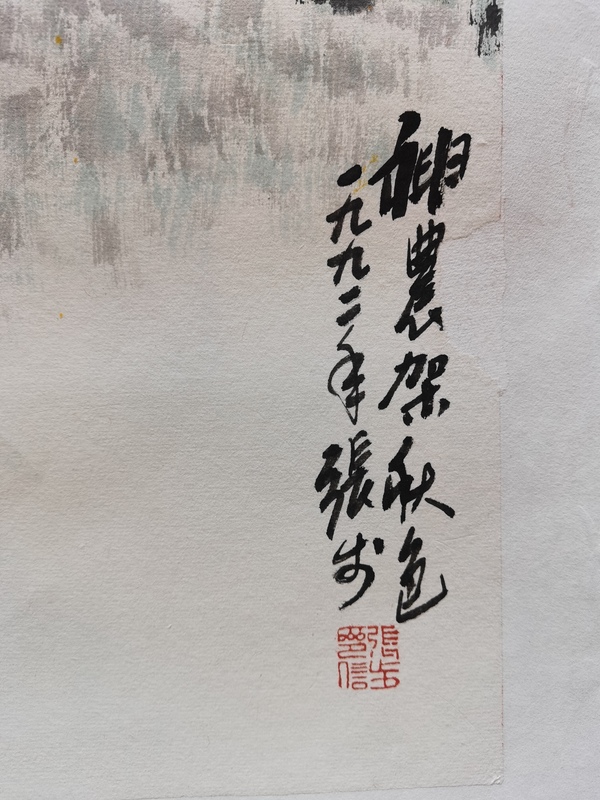 神農架秋色
一九九二年張步
張步
信